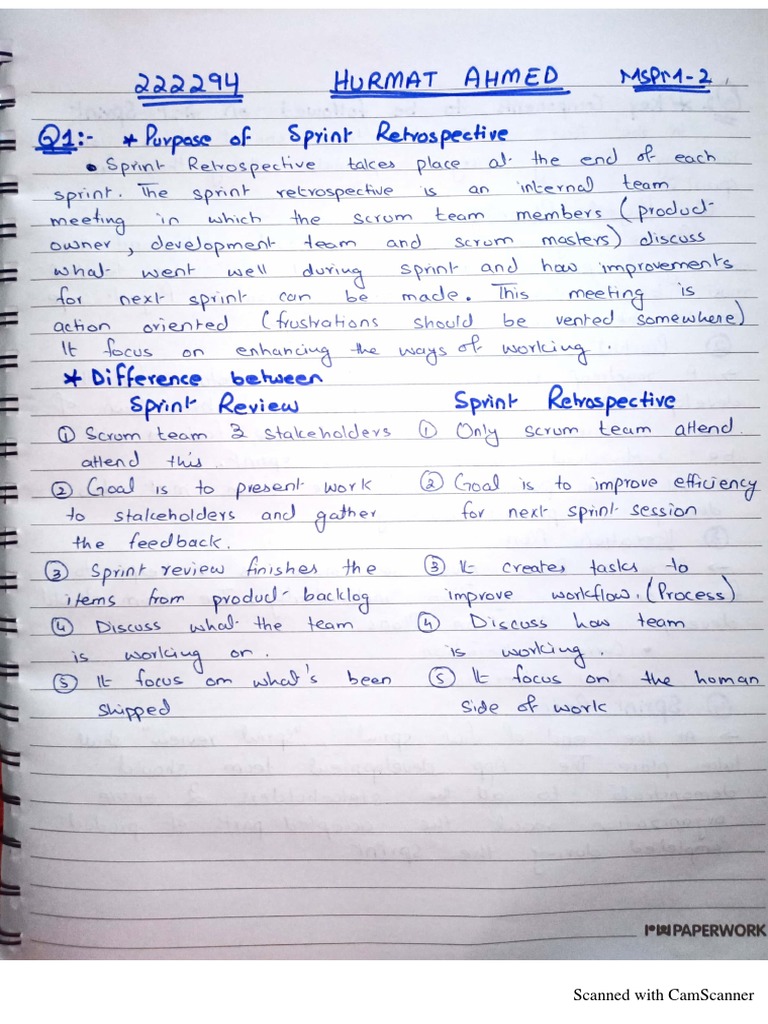 222294 HURMAT AHMED MSPM1-2
Q1:- * Purpose of Sprint Retrospective
• Sprint Retrospective takes place at the end of each
sprint. The sprint retrospective is an internal team
meeting in which the scrum team members (product
owner, development team and scrum masters) discuss
what went well during sprint and how improvements
for next sprint can be made. This meeting is
action oriented (frustrations should be vented somewhere)
It focus on enhancing the ways of working.
* Difference between
Sprint Review
① Scrum team & stakeholders
attend this.
② Goal is to present work
to stakeholders and gather
the feedback.
③ Sprint review finishes the
items from product backlog
④ Discuss what the team
is working on.
⑤ It focus on what's been
shipped
Sprint Retrospective
① Only scrum team attend.
② Goal is to improve efficiency
for next sprint session
③ It creates tasks to
improve workflow. (Process)
④ Discuss how team
is working.
⑤ It focus on the human
side of work
PAPERWORK
Scanned with CamScanner